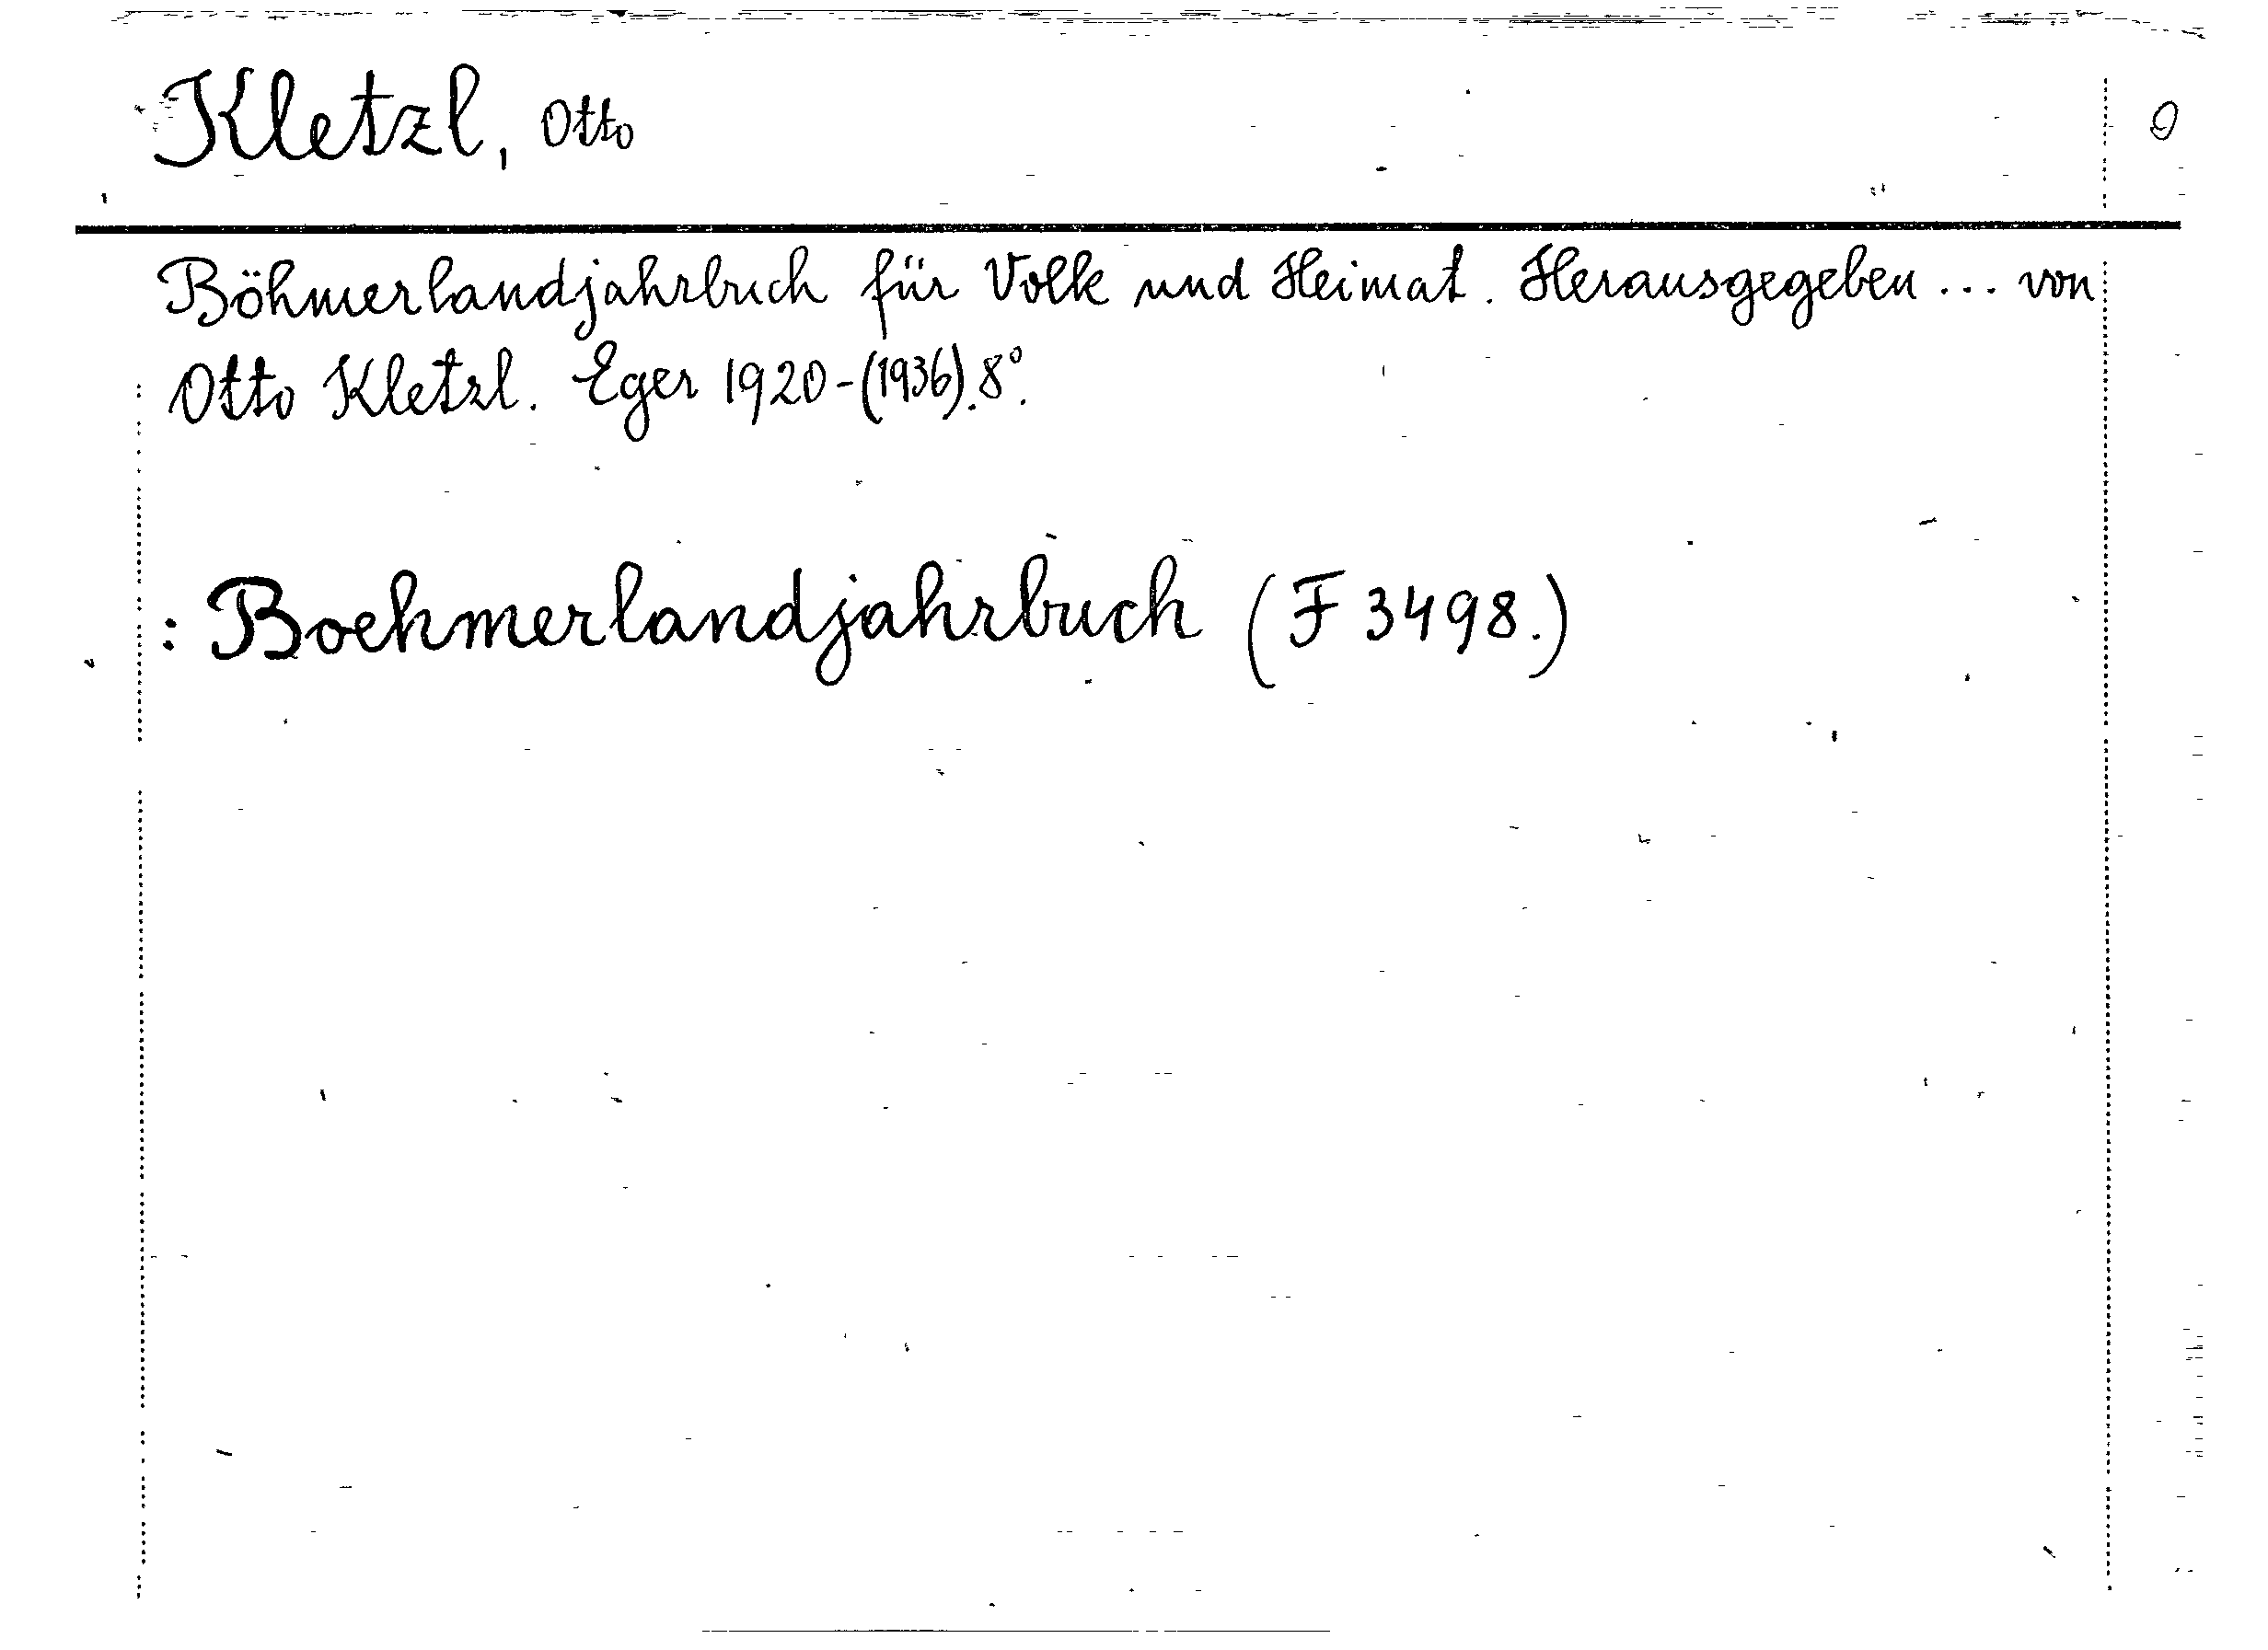 Kletzl, Otto
Böhmerlandjahrbuch für Volk und Heimat. Herausgegeben ... von
Otto Kletzl. Eger 1920-(1936). 8°.
: Boehmerlandjahrbuch (F 3498.)